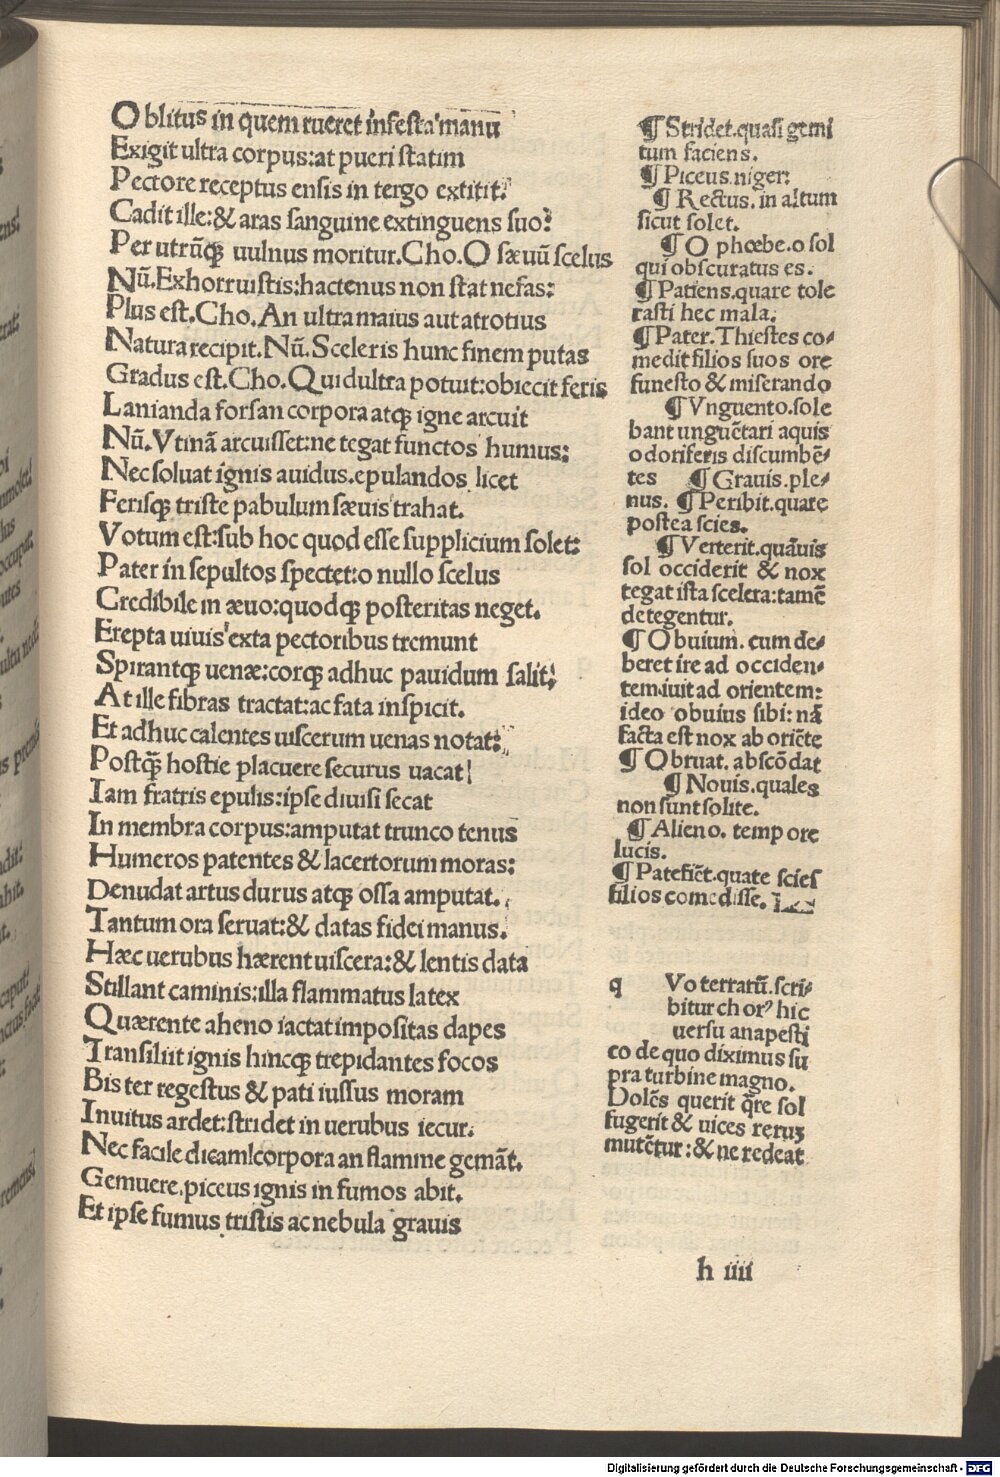 Oblitus in quem rueret infesta manu
Exigit ultra corpus:at pueri statim
Pectore receptus ensis in tergo extitit:
Cadit ille:& aras sanguine extinguens suo:
Per utrūqꝫ uulnus moritur.Cho.O sæuū scelus
Nū.Exhorruistis:hactenus non stat nefas:
Plus est.Cho.An ultra maius aut atrotius
Natura recipit.Nū.Sceleris hunc finem putas
Gradus est.Cho.Quid ultra potuit:obiecit feris
Lanianda forsan corpora atqꝫ igne arcuit
Nū.Vtinā arcuisset:ne tegat functos humus:
Nec soluat ignis auidus.epulandos licet
Ferisqꝫ triste pabulum sæuis trahat.
Votum est:sub hoc quod esse supplicium solet:
Pater insepultos spectet:o nullo scelus
Credibile in æuo:quodqꝫ posteritas neget.
Erepta uiuis exta pectoribus tremunt
Spirantqꝫ uenæ:corqꝫ adhuc pauidum salit:
At ille fibras tractat:ac fata inspicit.
Et adhuc calentes uiscerum uenas notat:
Postqꝫ̄ hostie placuere securus uacat
Iam fratris epulis:ipse diuisi secat
In membra corpus:amputat trunco tenus
Humeros patentes & lacertorum moras:
Denudat artus durus atqꝫ ossa amputat.
Tantum ora seruat:& datas fidei manus.
Hæc uerubus hærent uiscera:& lentis data
Stillant caminis:illa flammatus latex
Quærente aheno iactat impositas dapes
Transiliit ignis hincqꝫ trepidantes focos
Bis ter regestus & pati iussus moram
Inuitus ardet:stridet in uerubus iecur.
Nec facile dicam corpora an flamme gemāt.
Gemuere.piceus ignis in fumos abit.
Et ipse fumus tristis ac nebula grauis
¶ Stridet.quasi gemi
tum faciens.
¶ Piceus.niger:
¶ Rectus.in altum
sicut solet.
¶ O phœbe.o sol
qui obscuratus es.
¶ Patiens.quare tole
rasti hec mala.
¶ Pater.Thiestes co-
medit filios suos ore
funesto & miserando
¶ Vnguento.sole
bant unguētari aquis
odoriferis discumbē-
tes ¶ Grauis.ple-
nus. ¶ Peribit.quare
postea scies.
¶ Verterit.quāuis
sol occiderit & nox
tegat ista scelera:tamē
detegentur.
¶ Obuium.cum de-
beret ire ad occiden-
tem:iuit ad orientem:
ideo obuius sibi:nā
facta est nox ab oriēte
¶ Obruat.abscōdat
¶ Nouis.quales
non sunt solite.
¶ Alieno.tempore
lucis.
¶ Patefiēt.quare scies
filios comedisse.
q Vo terrarū.scri-
bitur chorꝰ hic
uersu anapesti
co de quo diximus su
pra turbine magno.
Dolēs querit q̄re sol
fugerit & uices rerum
mutētur:& ne redeat
h iiii
Digitalisierung gefördert durch die Deutsche Forschungsgemeinschaft - DFG